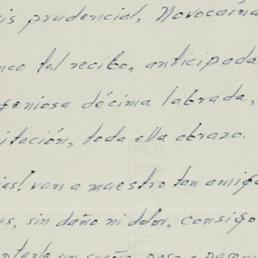 is prudencial, Novocaína
tal recibo, anticipada
geniosa décima labrada,
itación, toda ella abrazo.
van a maestro tan amigo
es, sin daño ni dolor, consigo